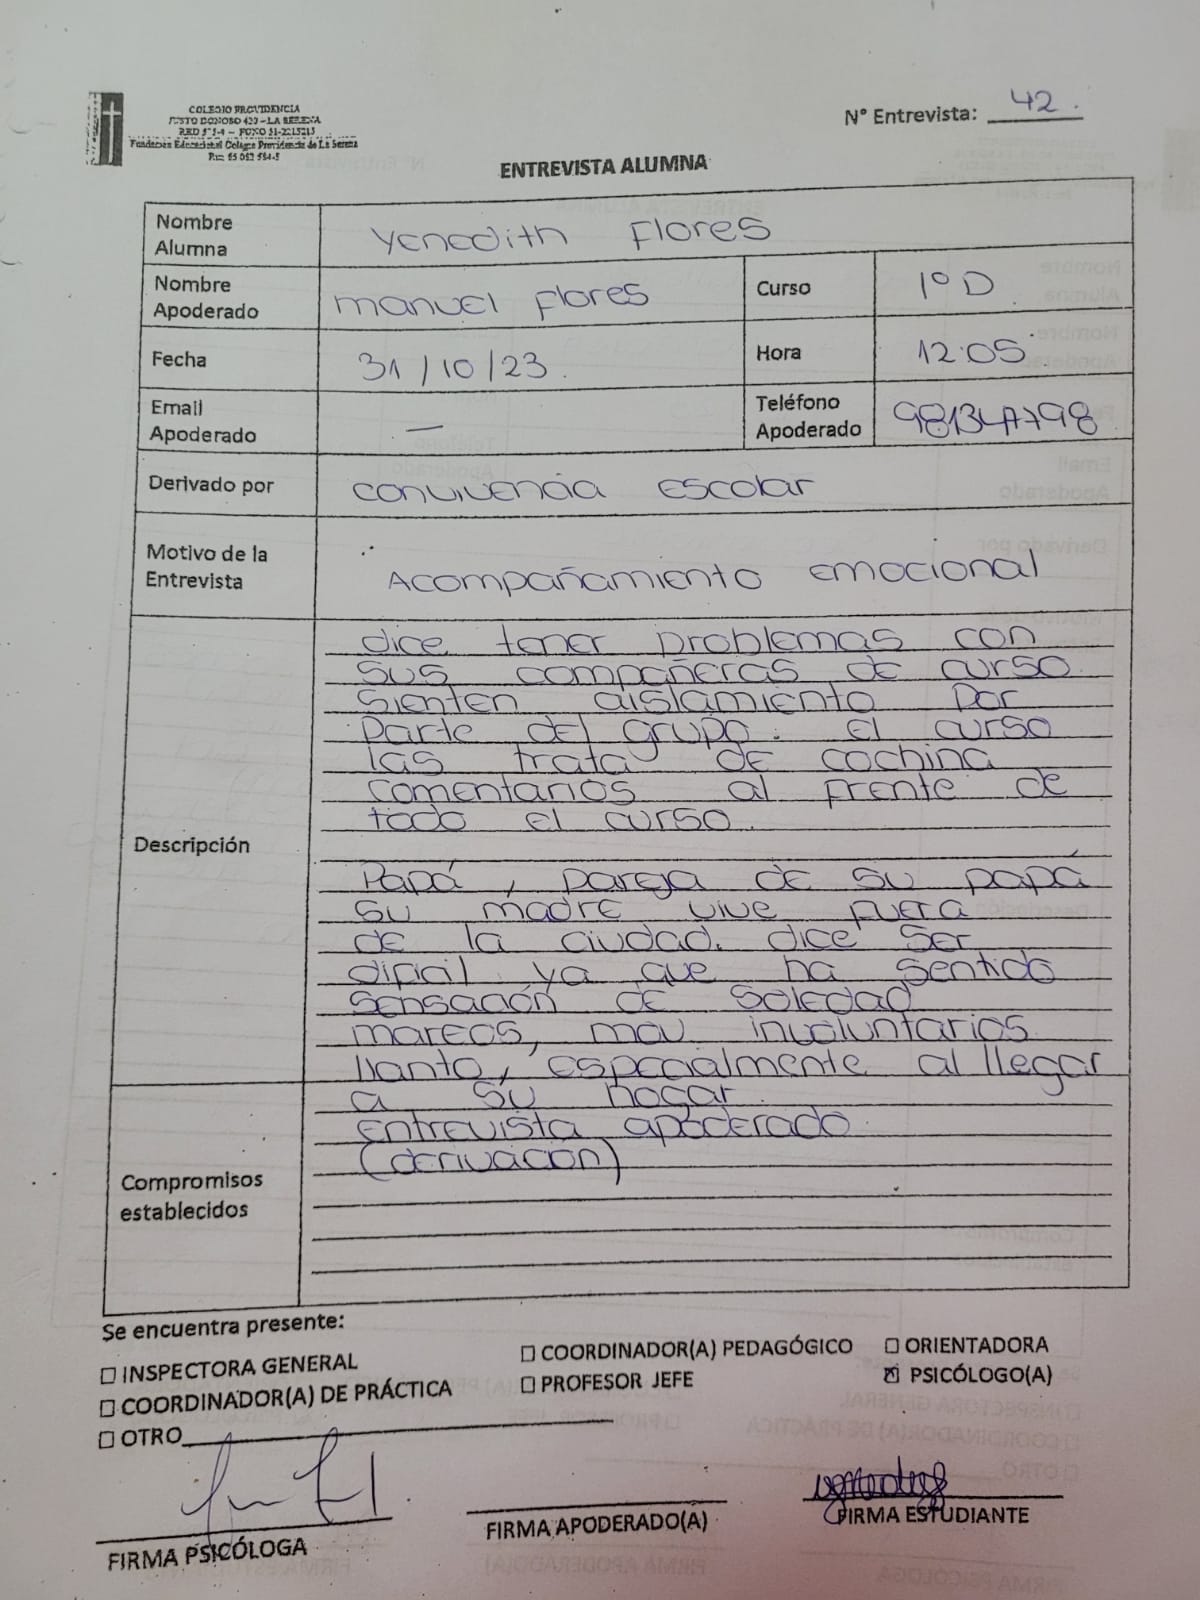 COLEGIO PROVIDENCIA
JUSTO DONOSO 420 – LA SERENA
Fundación Educacional Colegio Providencia de La Serena
Nº Entrevista: 42.
ENTREVISTA ALUMNA
Nombre Alumna Yenedith Flores
Nombre Apoderado Manuel Flores Curso 1º D
Fecha 31/10/23. Hora 12:05
Email Apoderado — Teléfono Apoderado
Derivado por convivencia escolar
Motivo de la Entrevista Acompañamiento emocional
Descripción
dice tener problemas con
sus compañeras de curso
sienten aislamiento por
parte del grupo. el curso
las trata de cochina
comentarios al frente de
todo el curso.
Papá, pareja de su papá
su madre vive fuera
de la ciudad. dice ser
dificil ya que ha sentido
sensación de soledad
mareos, mov. involuntarios
llanto, especialmente al llegar
a su hogar.
Compromisos establecidos
entrevista apoderado
(derivacion)
Se encuentra presente:
☐ INSPECTORA GENERAL ☐ COORDINADOR(A) PEDAGÓGICO ☐ ORIENTADORA
☐ COORDINADOR(A) DE PRÁCTICA ☐ PROFESOR JEFE ☒ PSICÓLOGO(A)
☐ OTRO
FIRMA PSICÓLOGA FIRMA APODERADO(A) FIRMA ESTUDIANTE